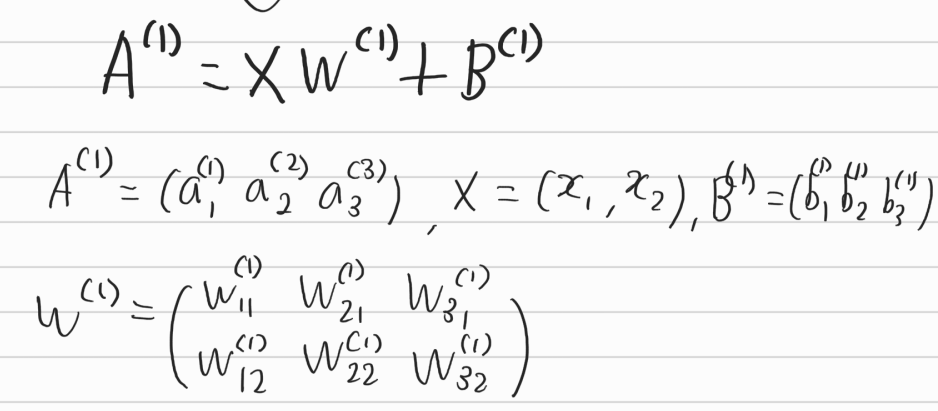 A^(1) = X W^(1) + B^(1)
A^(1) = (a_1^(1) a_2^(2) a_3^(3)), X = (x_1, x_2), B^(1) = (b_1^(1) b_2^(1) b_3^(1))
W^(1) = (w_11^(1) w_21^(1) w_31^(1)
w_12^(1) w_22^(1) w_32^(1))